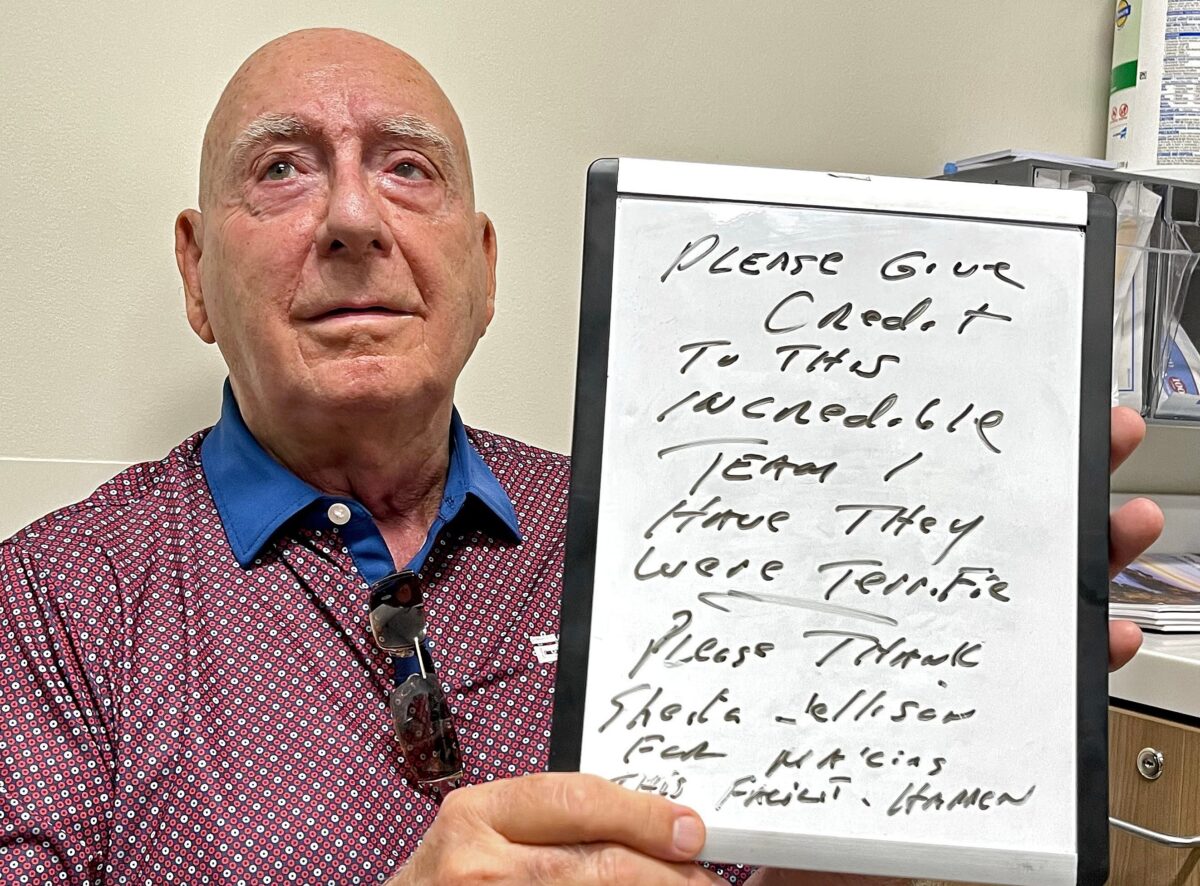 PLEASE GIVE
CRedit
To THIS
INCRedible
TEAM I
HAVE THey
Were TerriFic
PLease THANK
Sheila
For
THIS FACILIT. HAPPEN